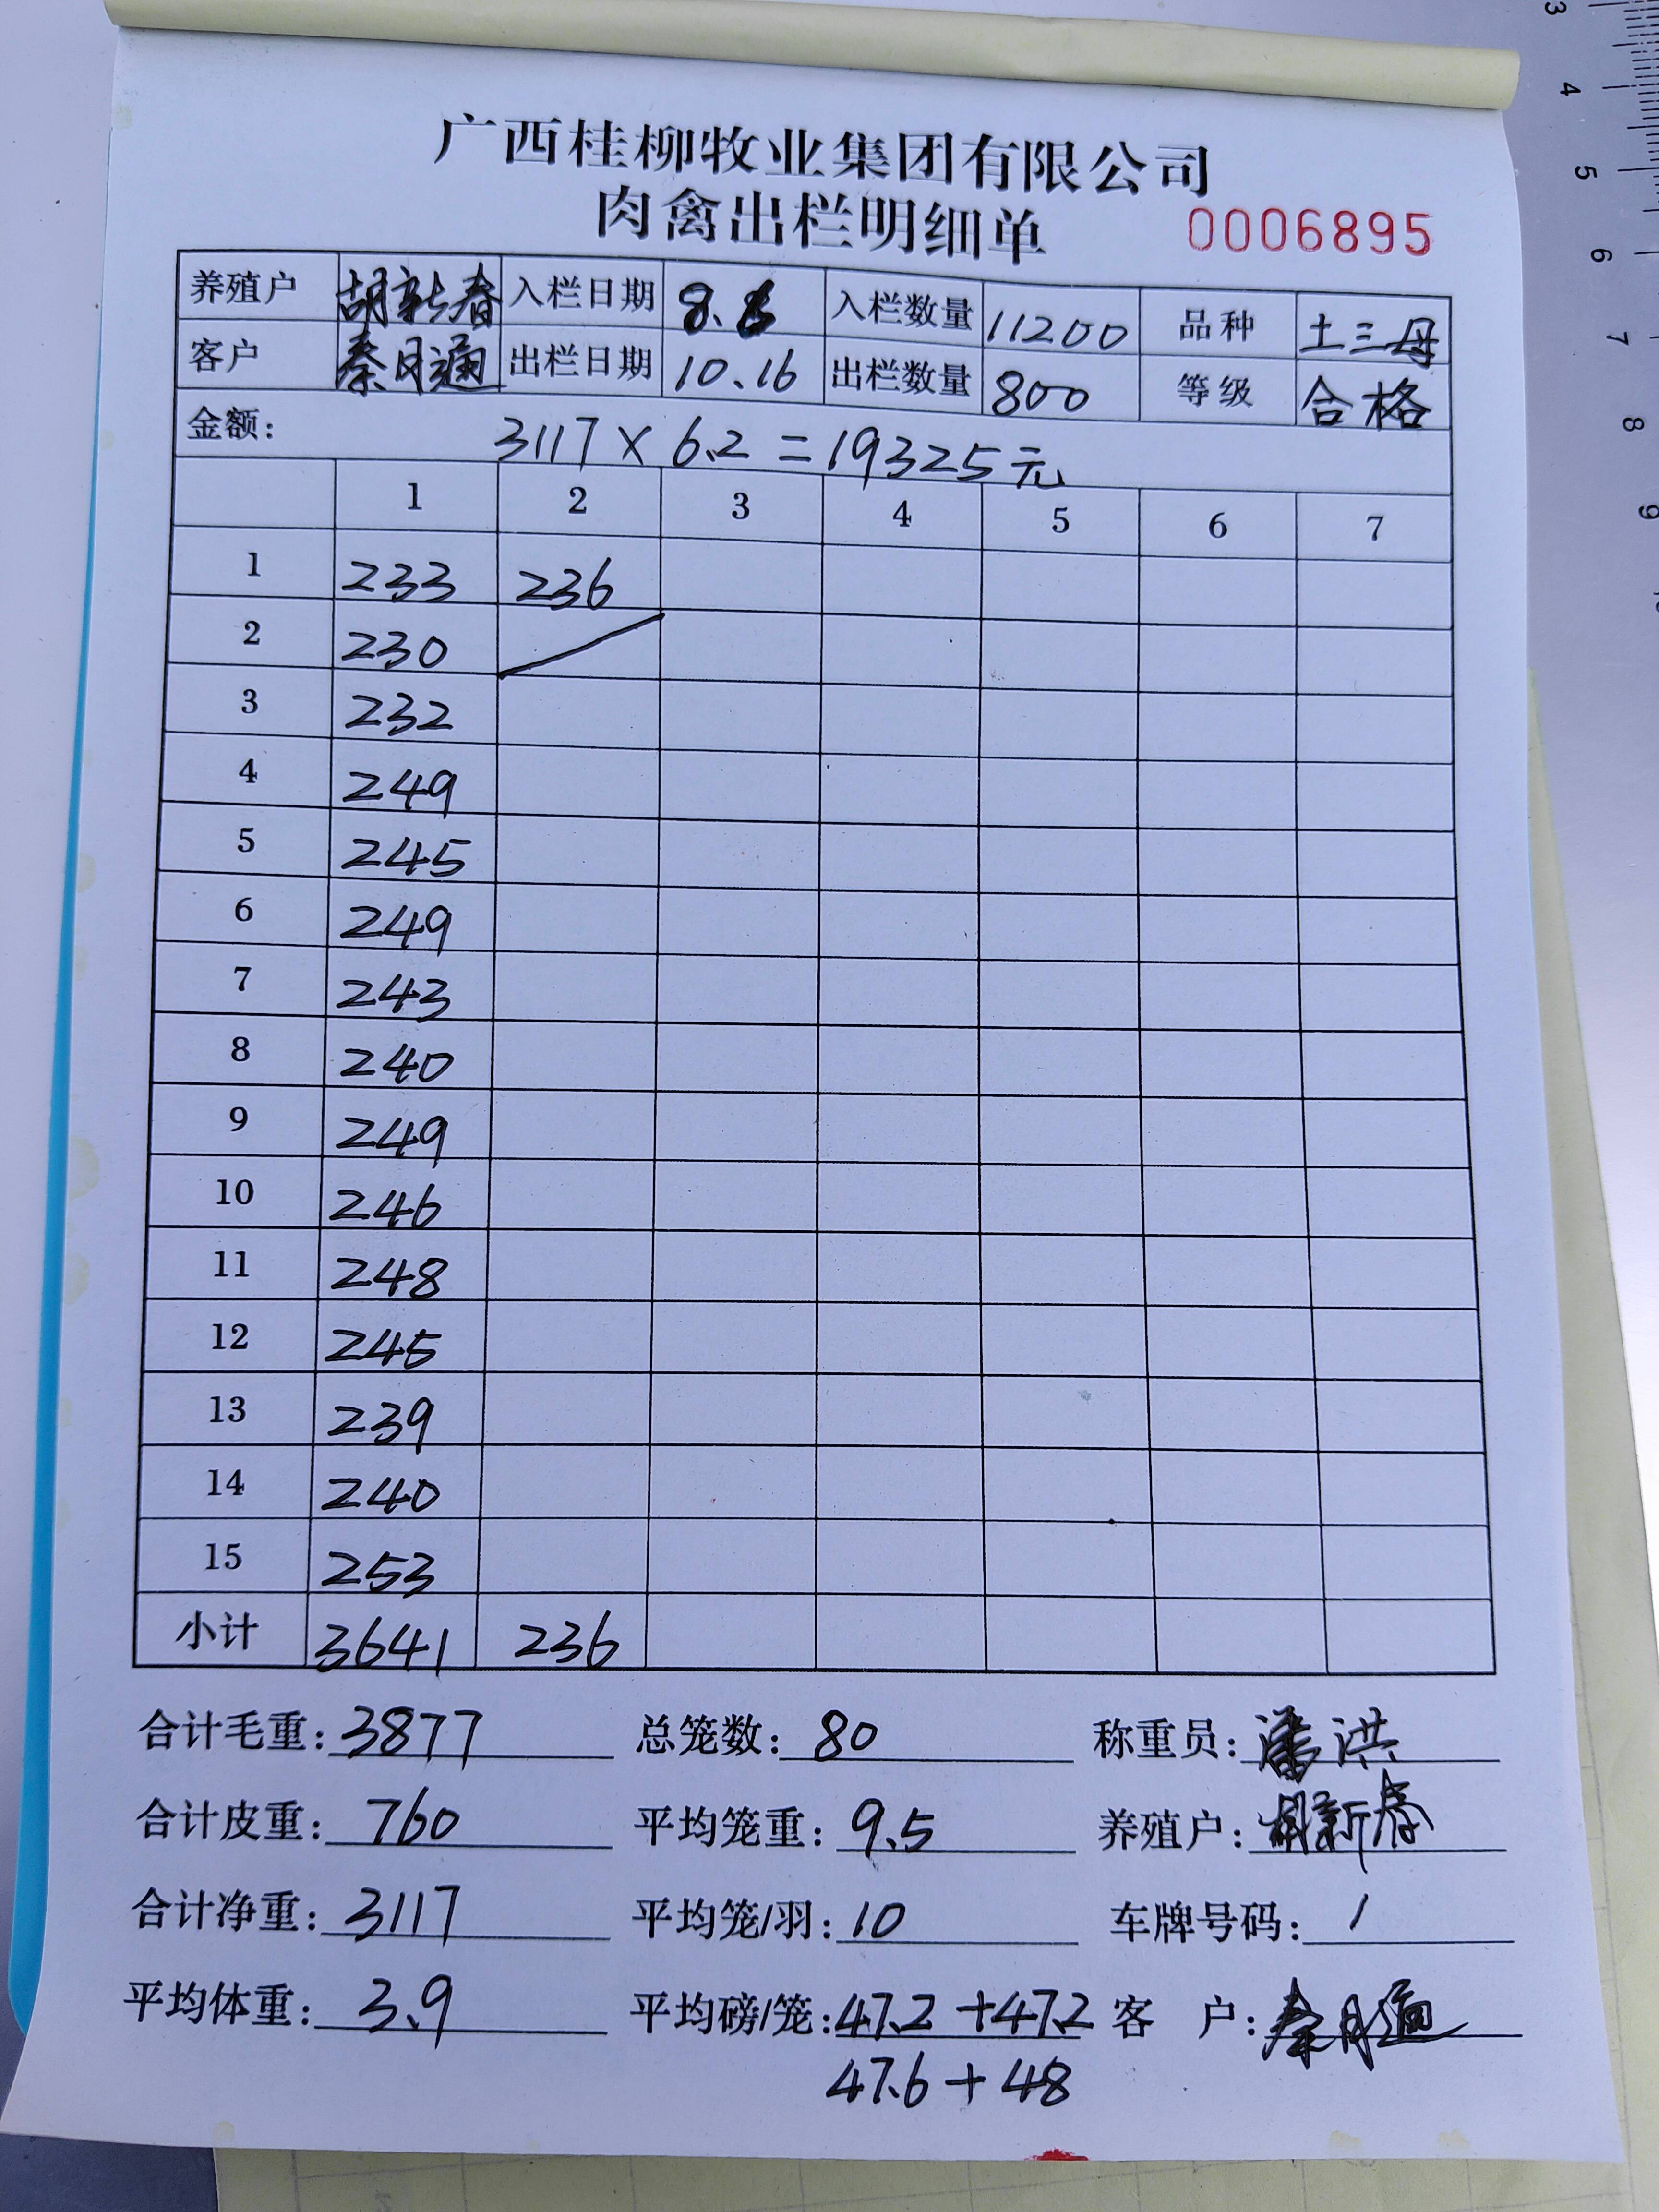 广西桂柳牧业集团有限公司
肉禽出栏明细单 0006895
养殖户 胡新春 入栏日期 8. 入栏数量 11200 品种 土三母
客户 秦月通 出栏日期 10.16 出栏数量 800 等级 合格
金额: 3117 × 6.2 = 19325元
1 2 3 4 5 6 7
1 233 236
2 230
3 232
4 249
5 245
6 249
7 243
8 240
9 249
10 246
11 248
12 245
13 239
14 240
15 253
小计 3641 236
合计毛重: 3877 总笼数: 80 称重员: 潘洪
合计皮重: 760 平均笼重: 9.5 养殖户: 胡新春
合计净重: 3117 平均笼/羽: 10 车牌号码: /
平均体重: 3.9 平均磅/笼: 47.2 + 47.2 客 户: 秦月通
47.6 + 48
3
4
5
6
7
8
9